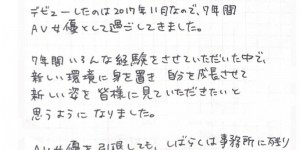 デビューしたのは2017年11月なので、7年間
AV女優として過ごしてきました。
7年間いろんな経験をさせていただいた中で、
新しい環境に身を置き 自分を成長させて
新しい姿を皆様に見ていただきたいと
思うようになりました。
AV女優を引退しても、しばらくは事務所に残り